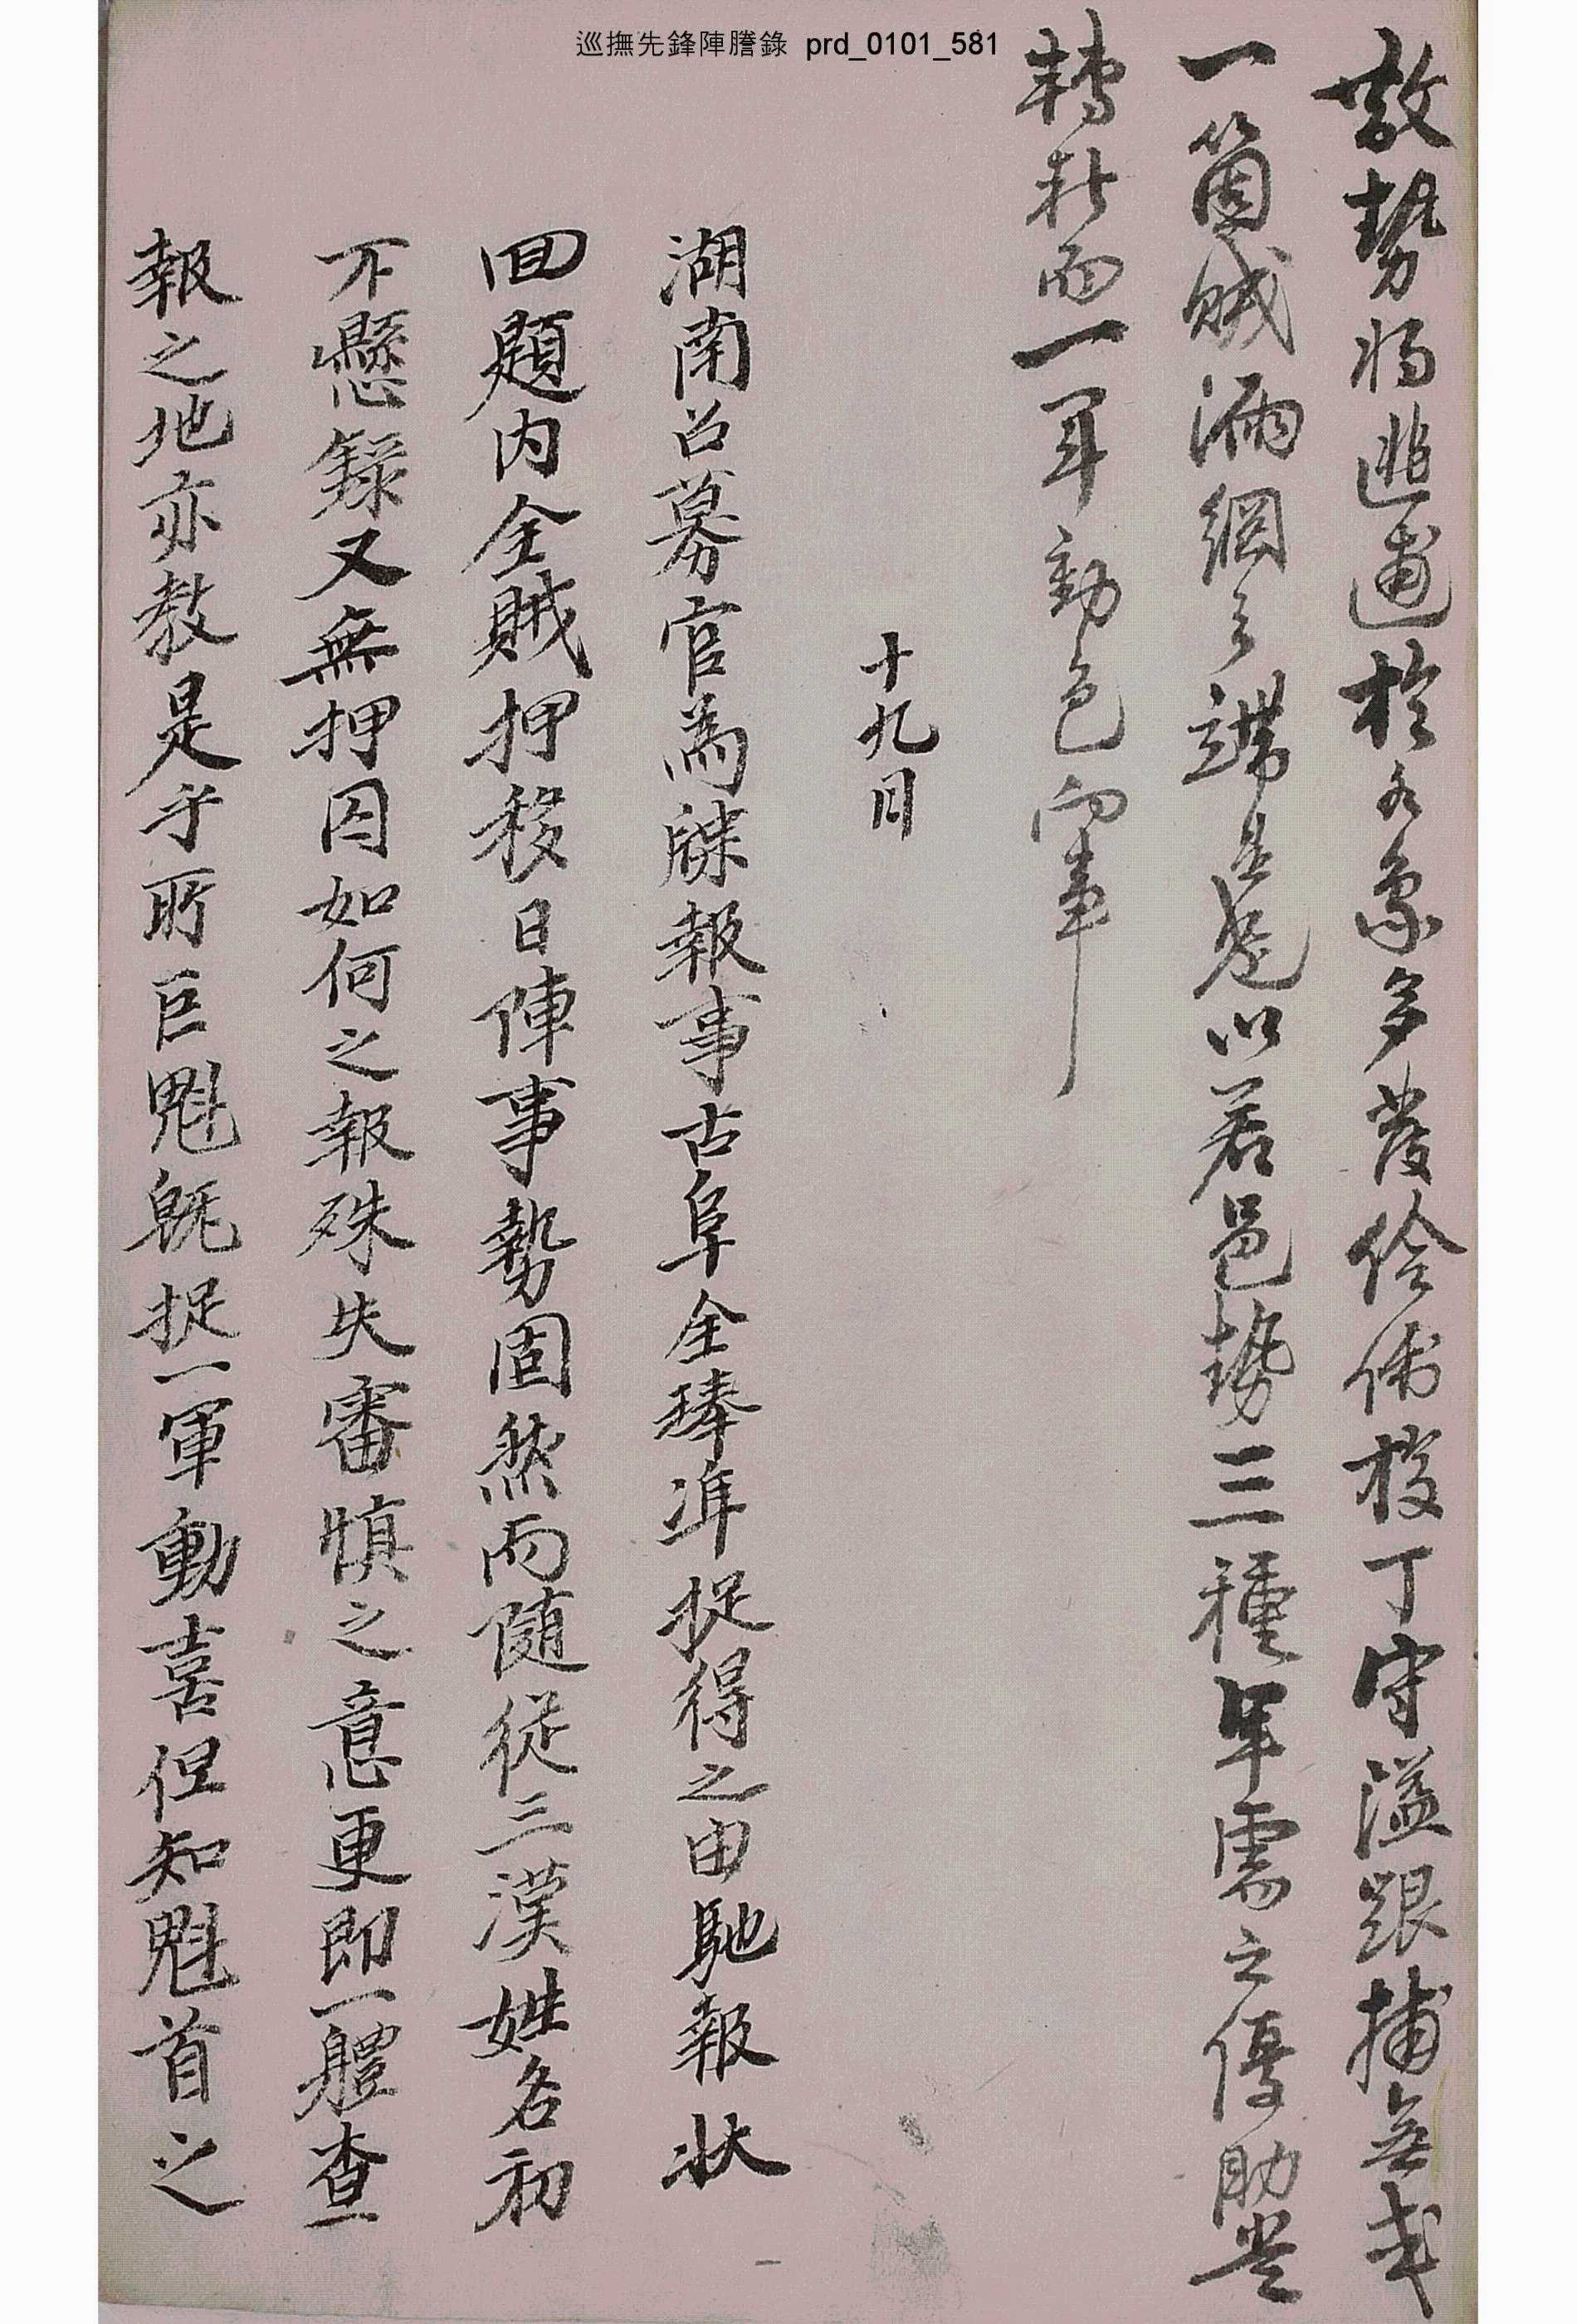 巡撫先鋒陣謄錄 prd_0101_581
散勢將逃逋於各處多發伶俐校丁守溢跟捕無或
一箇賊漏網之端是旀以若邑勢三種軍需之優助甚
轉新而一軍動色向事
十九日
湖南召募官爲牒報事古阜全琫準捉得之由馳報狀
回題內全賊押移日陣事勢固然而隨從三漢姓名初
不懸錄又無押囚如何之報殊失審愼之意更卽一體查
報之地亦敎是乎所巨魁旣捉一軍動喜但知魁首之